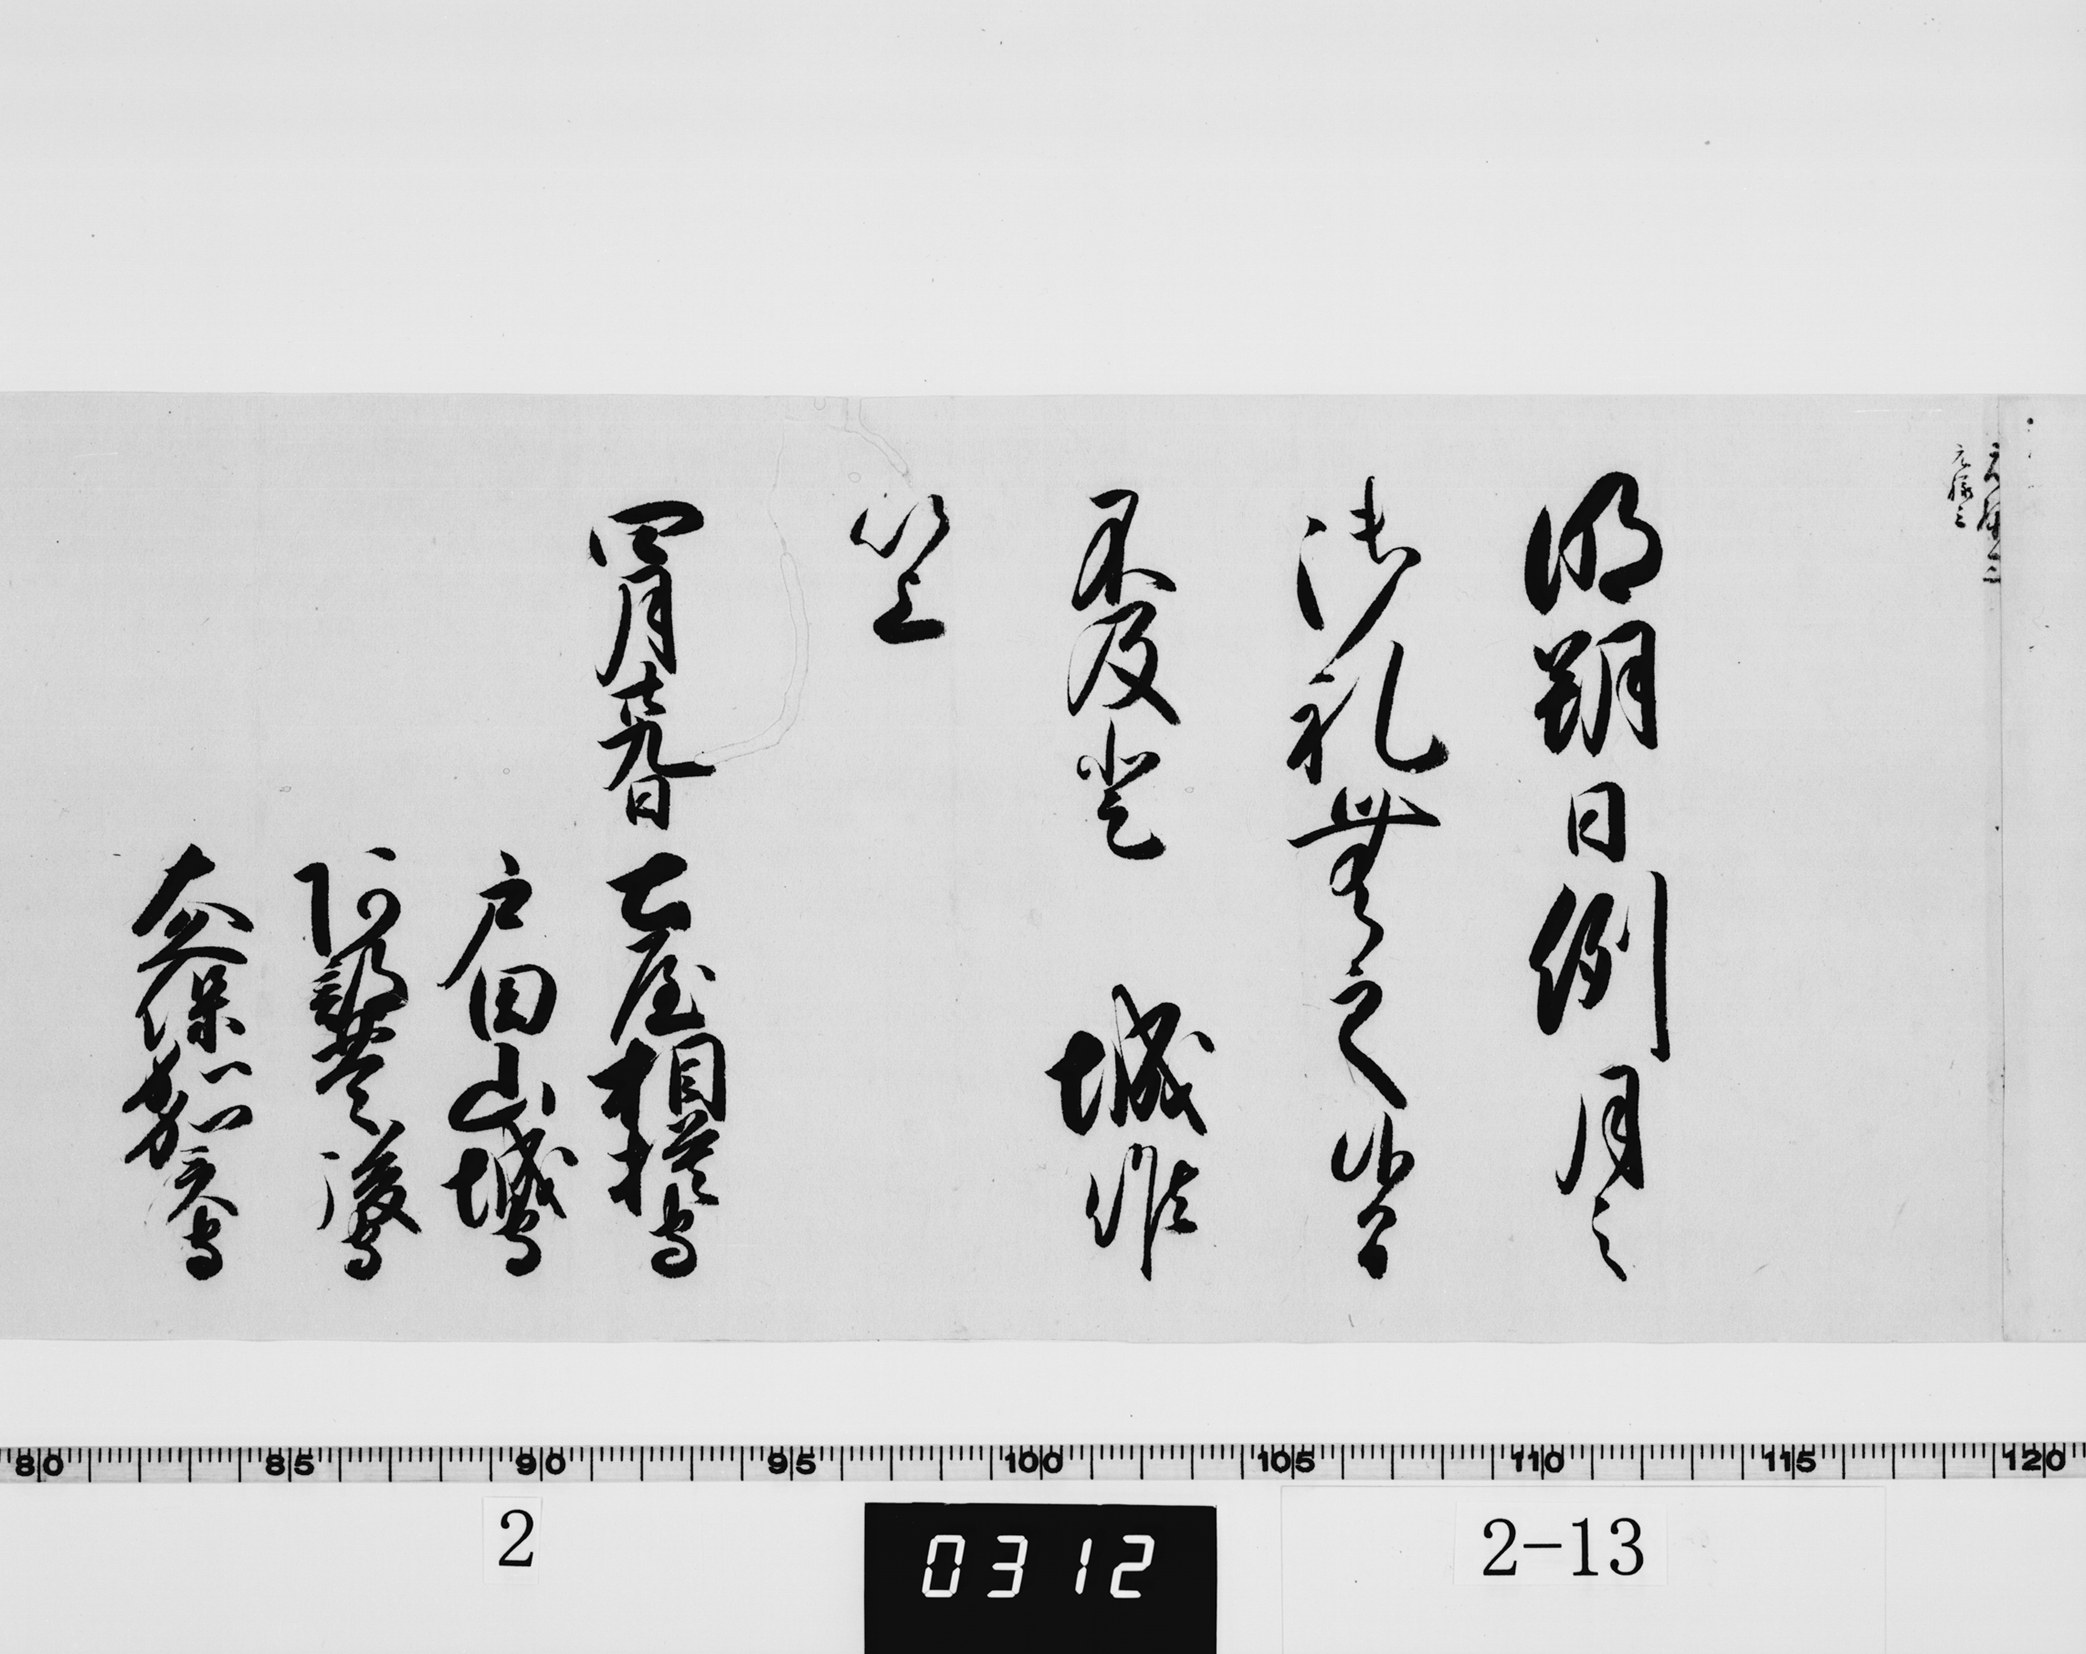 元禄三
明朔日例月之
御礼無之候間
不及登　城候
以上
四月廿九日
土屋相模守
戸田山城守
阿部豊後守
大久保加賀守
80 85 90 95 100 105 110 115 120
2
0312
2-13